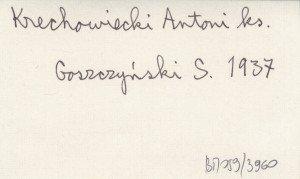 Krechowiecki Antoni ks.
Goszczyński S. 1937
BŊ/159/3960